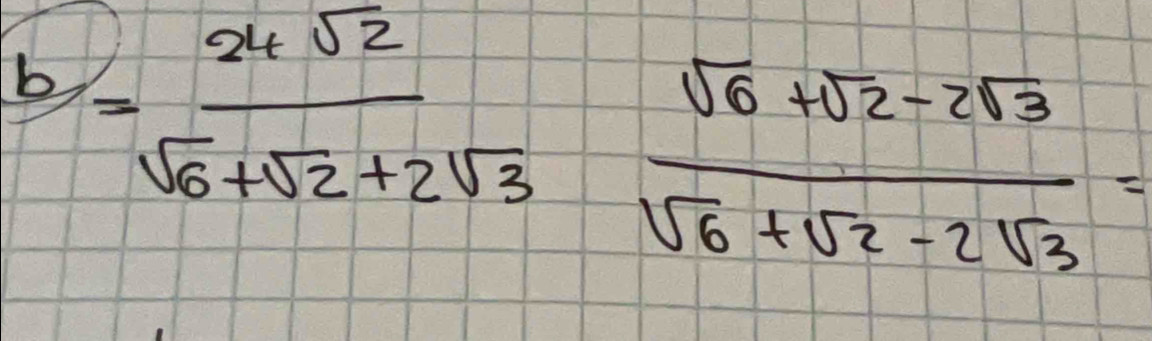 b = 24 √2 / √6 + √2 + 2√3 √6 + √2 - 2√3 / √6 + √2 - 2√3 =